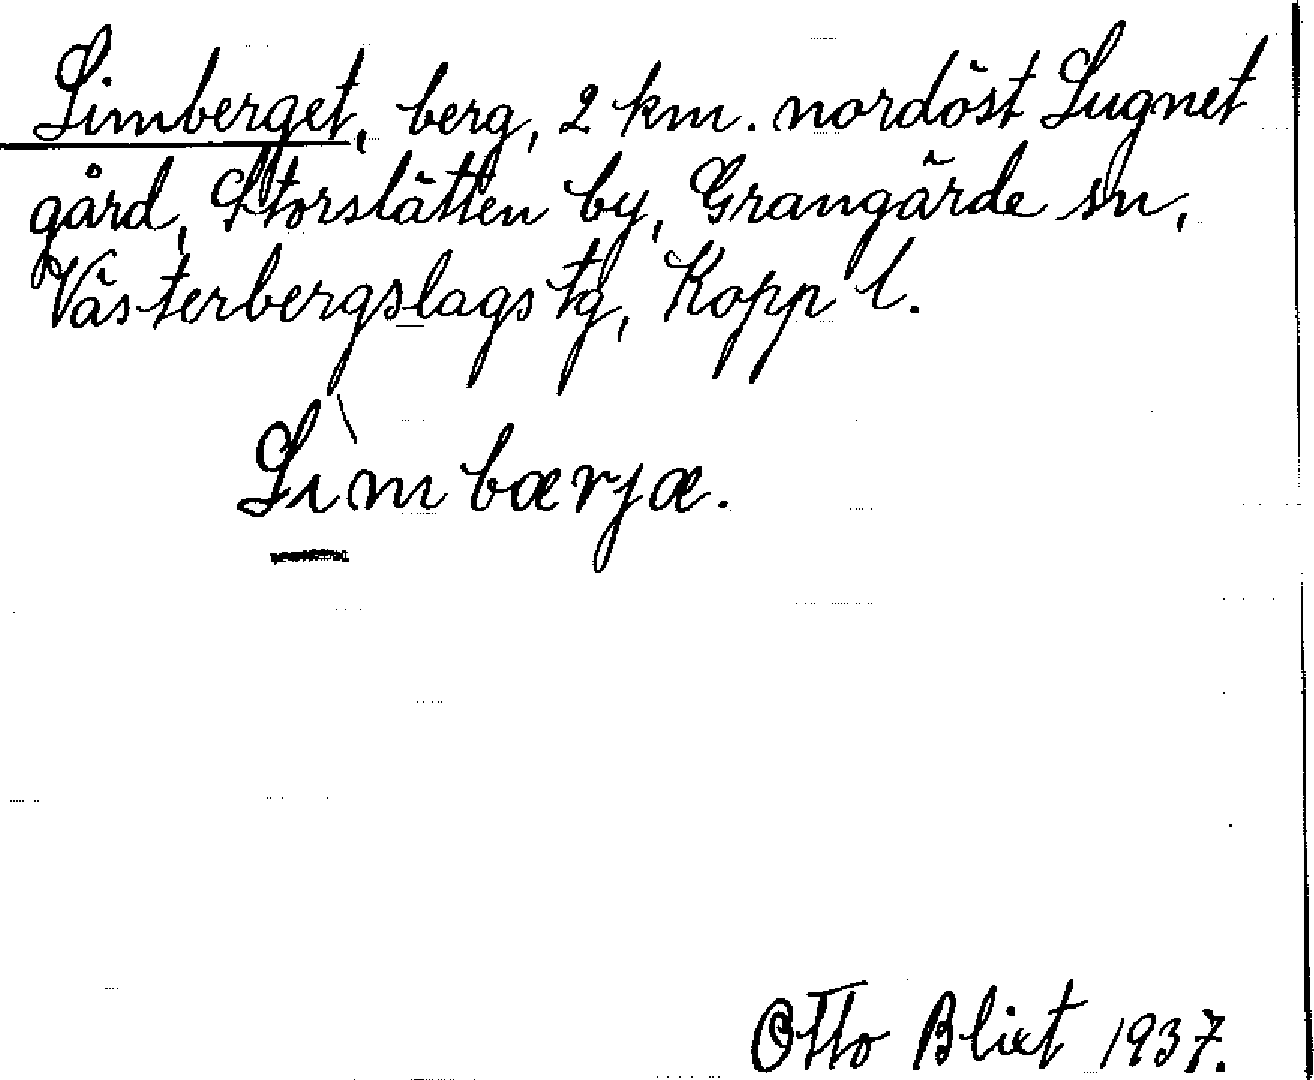 Limberget, berg, 2 km. nordöst Lugnet
gård, Storslätten by, Grangärde sn,
Västerbergslags tg, Kopp l.
Lìmbærjæ.
Otto Blixt 1937.